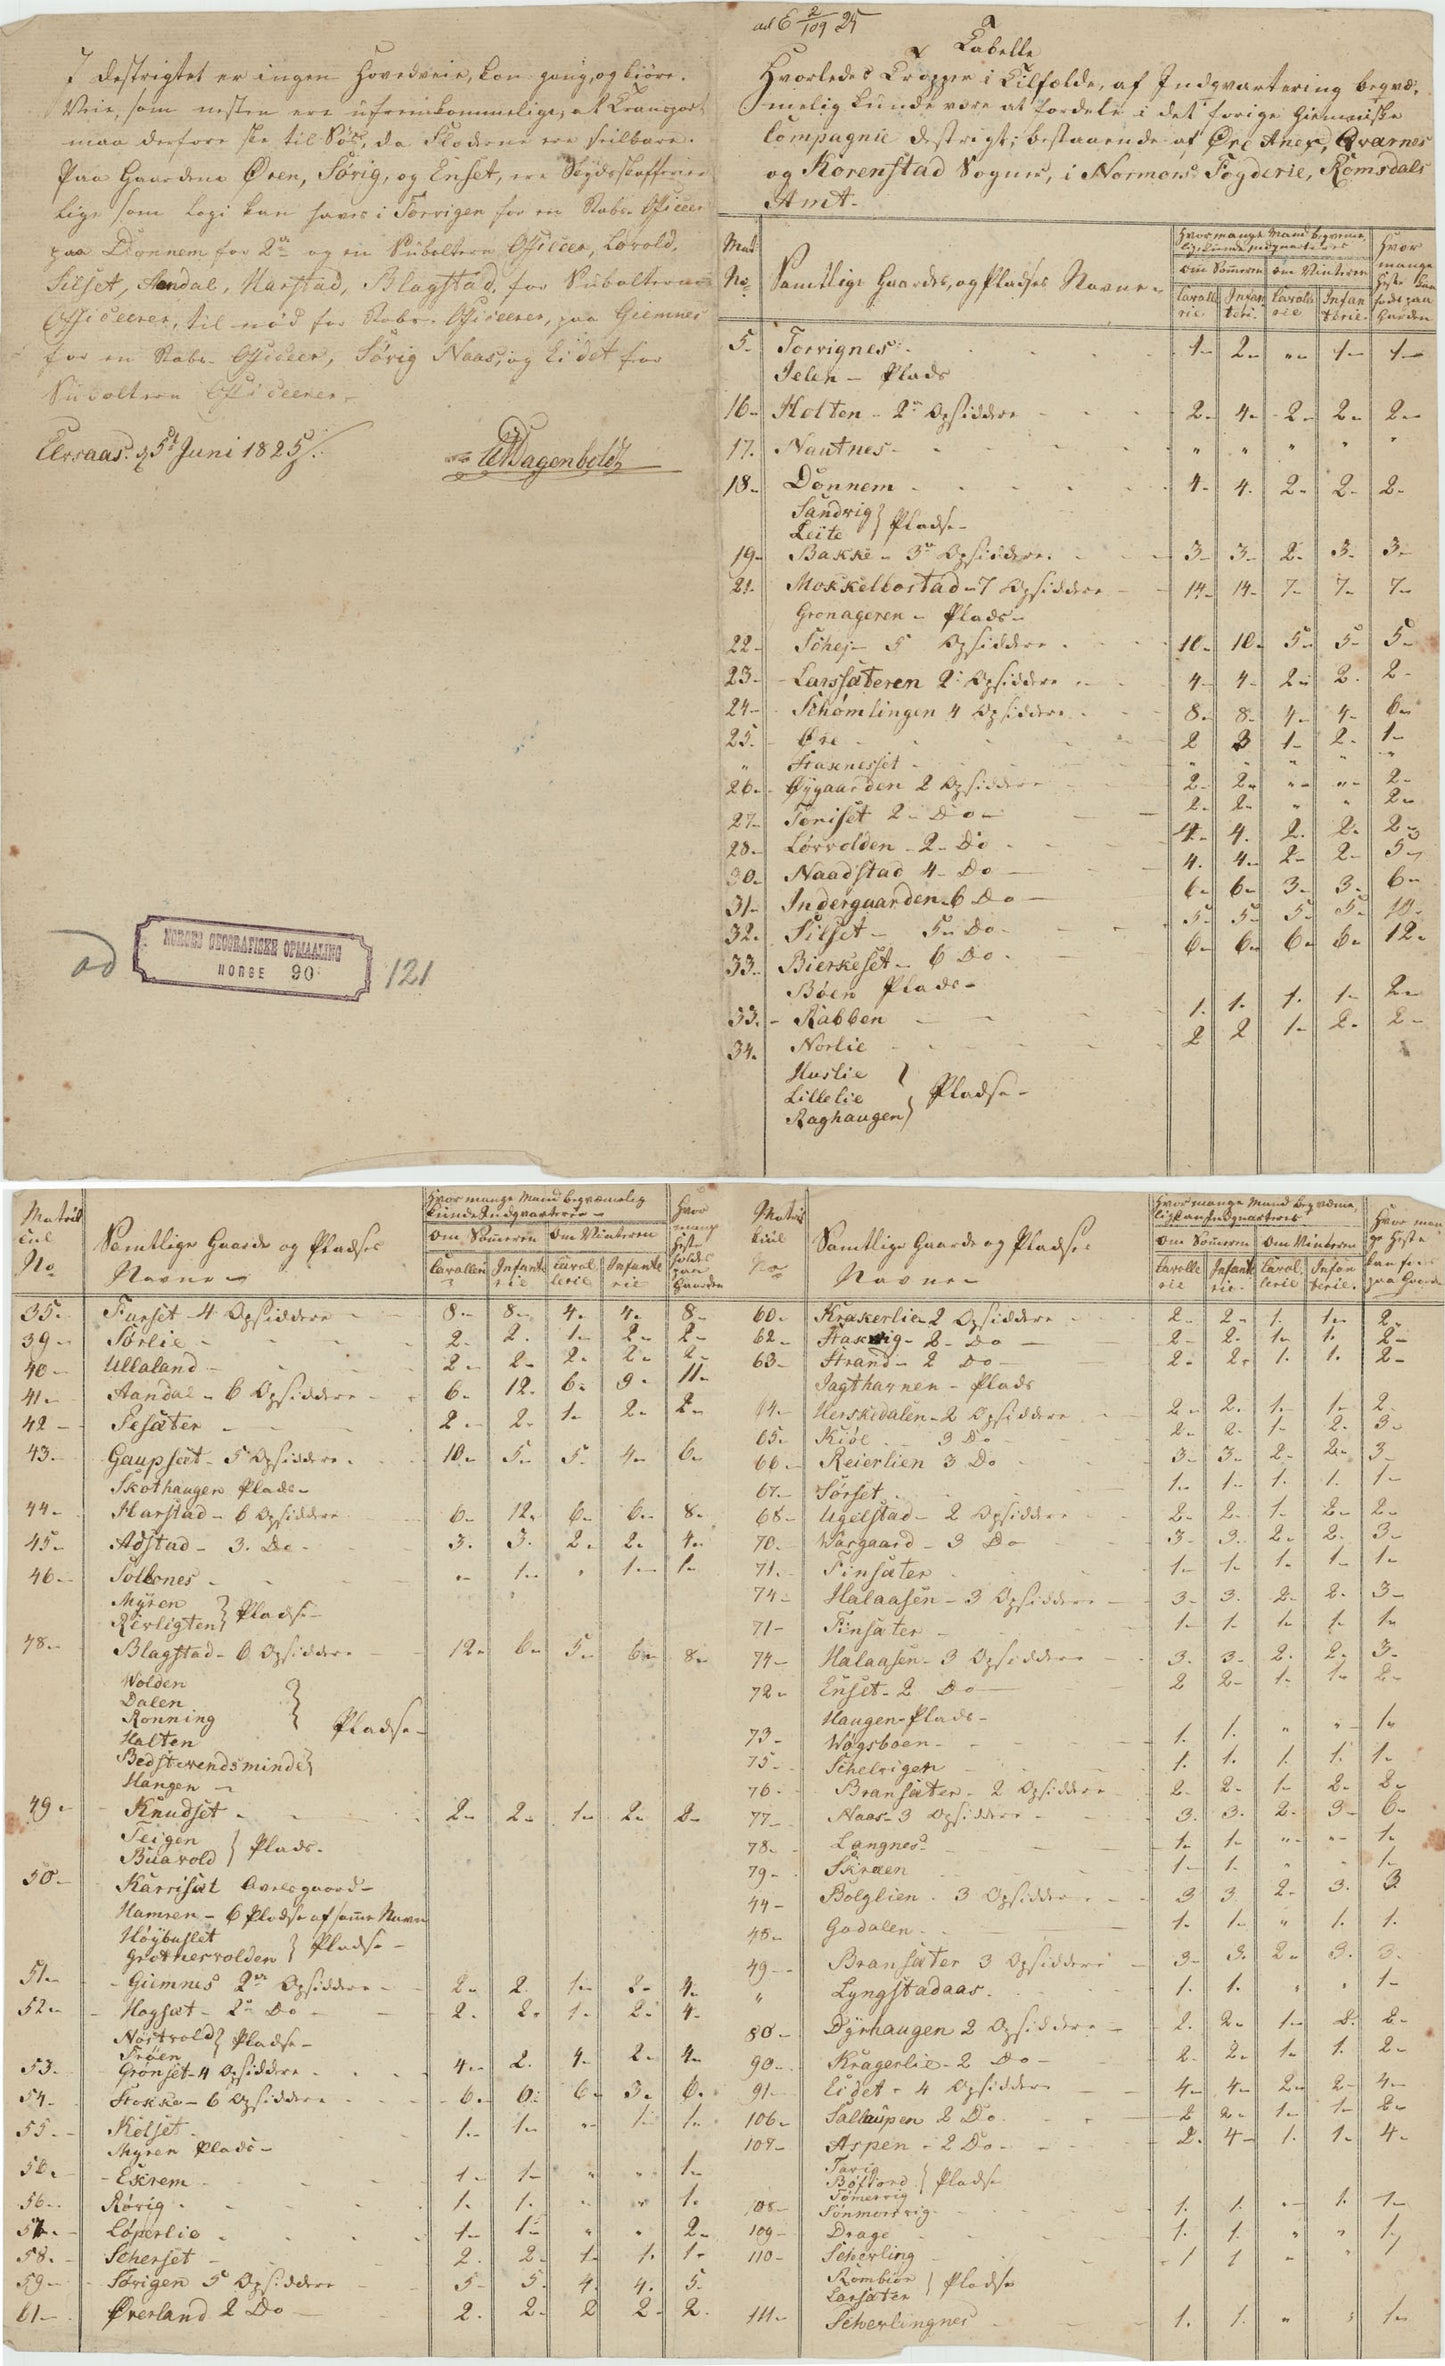 I destrigtet er ingen Hovedveie, kon gang, og kiöre.
Veie, som nesten ere ufremkommelige, al Transport
maa derfore ske til Søe, da Floderne ere seilbare.
Paa Gaardene Øren, Sørig, og Enset, ere Skydsskafferier
lige som logi kan haves i Torvigen for en Stabs Officeer
paa Dönnem for 2de og en Subaltern Officeer, Lovold,
Silset, Aandal, Harstad, Blagstad, for Subalterne
Officeerer, til nöd for Stabs Officeerer, paa Giemnes
for en Stabs Officeer, Sörig Naas, og Eidet for
Subaltern Officeerer
Elvsaas d 5t Juni 1825
ad
NORGES GEOGRAFISKE OPMAALING
NORGE 90
121
ad E 2/109 25
Tabelle
Hvorledes Tropper i Tilfælde, af Indqvartering begvæ,
melig kunde være at fordele i det forige Giemnesiske
Compagnie destrigt; bestaaende af Øre Anex, Qvarnes
og Korenstad Sogne, i Normörs Fogderie, Romsdals
Amt.
Mat: No. Samtlige Gaardes, og Pladses Navne
Hvor mange Mand begveme
om Sommeren om Vinteren
Cavallerie Infanteri. Cavallerie Infanterie.
Hvor mange Heste kan födes paa Gaarden
5 Torvignes 1 2 " 1 1
Jelen - Plads
16 Holten - 2de Opsiddere 2 4 2 2 2
17. Nautnes " " " " "
18 Dönnem 4 4 2 2 2
Sandvig
Leite } Pladse
19 Bakke - 3de Opsiddere 3 3 2 3 3
21 Mokkelbostad - 7 Opsiddere 14 14 7 7 7
Gronageren - Plads
22 Schej - 5 Opsiddere 10 10 5 5 5
23 Larssæteren 2 Opsiddere 4 4 2 2 2
24 Schömlingen 4 Opsiddere 8 8 4 4 6
25. Øre 2 3 1 2 1
" Staxnesset " " " " "
26 Øygaarden 2 Opsiddere 2 2 " " 2
27 Toniset 2 Do 2 2 " " 2
28 Lövvolden 2 Do 4 4 2 2 2
30 Naadstad 4 Do 4 4 2 2 5
31 Indergaarden 6 Do 6 6 3 3 6
32 Silset - 5 Do 5 5 5 5 10
33 Bierkeset - 6 Do 6 6 6 6 12
Böen Plads
33. Rabben 1 1 1 1 2
34. Norlie 2 2 1 2 2
Huslie
Lillelie
Raghaugen } Pladse
Matrikul No Samtlige Gaarde og Pladses Navne
Hvor mange Mand begvæmelig kunde Indqvarteres
om Sommeren om Vinteren
Cavalleri Infanterie Cavallerie Infanterie
Hvor mange Heste holdes paa Gaarden
35 Furset 4 Opsiddere 8 8 4 4 8
39 Sørlie 2 2 1 2 2
40 Ullaland 2 2 2 2 2
41 Aandal - 6 Opsiddere 6 12 6 9 11
42 Sesæter 2 2 1 2 2
43 Gaupsæt - 5 Opsiddere 10 5 5 4 6
Skothaugen Plads
44 Harstad - 6 Opsiddere 6 12 6 6 8
45 Aðstad - 3. Do 3 3 2 2 4
46 Solbnes " 1 " 1 1
Myren
Rivligten } Pladse
48 Blagstad - 6 Opsiddere 12 6 5 6 8
Wolden
Dalen
Ronning
Halten
Bedstevendsminde
Hangen
Pladse
49 Knudset 2 2 1 2 2
Teigen
Buavold } Plads
50 Karrisæt Avelsgaard
Hamren - 6 Pladse af samme Navn
Höybuslet
Grotnesvolden } Pladse
51 Giemnes 2de Opsiddere 2 2 1 2 4
52 Hogsæt - 2de Do 2 2 1 2 4
Nöstvold
Tröen } Pladse
53 Gronset - 4 Opsiddere 4 2 4 2 4
54 Stokke - 6 Opsiddere 6 6 6 3 6
55 Kölset 1 1 " 1 1
Myren Plads
56 Eskrem 1 1 " " 1
56 Rövig 1 1 " " 1
57 Löperlie 1 1 " " 2
58 Scherset 2 2 1 1 1
59 Sörigen 5 Opsiddere 5 5 4 4 5
61 Øverland 2 Do 2 2 2 2 2
Matrikul No Samtlige Gaarde og Pladses Navne
Hvor mange Mand begvæme
om Sommeren om Vinteren
Cavallerie Infanterie Cavallerie Infanterie.
Hvor mange Heste kan foes paa Gaarde
60 Krakerlie 2 Opsiddere 2 2 1 1 2
62 Staxvig - 2 Do 2 2 1 1 2
63 Strand - 2 Do 2 2 1 1 2
Jagtharnen - Plads
64 Herskedalen 2 Opsiddere 2 2 1 1 2
65 Kiöl 3 Do 2 2 1 2 3
66 Reierlien 3 Do 3 3 2 2 3
67 Sörset 1 1 1 1 1
68 Ugelstad - 2 Opsiddere 2 2 1 2 2
70 Vargaard - 3 Do 3 3 2 2 3
71 Finsæter 1 1 1 1 1
74 Halaasen - 3 Opsiddere 3 3 2 2 3
71 Finsæter 1 1 1 1 1
74 Halaasen - 3 Opsiddere 3 3 2 2 3
72 Enset - 2 Do 2 2 1 1 2
Haugen Plads
73 Wogsboen 1 1 " " 1
75 Schelvigen 1 1 1 1 1
76 Bransæter - 2 Opsiddere 2 2 1 2 2
77 Naas - 3 Opsiddere 3 3 2 3 6
78 Langnes 1 1 " " 1
79 Skraen 1 1 " " 1
44 Bolglien 3 Opsiddere 3 3 2 3 3
48 Godalen 1 1 " 1 1
49 Bransæter 3 Opsiddere 3 3 2 3 3
" Lyngstadaas 1 1 " " 1
80 Dyrhaugen 2 Opsiddere 2 2 1 2 2
90 Kragerlie - 2 Do 2 2 1 1 2
91 Eidet - 4 Opsiddere 4 4 2 2 4
106 Sallaupen 2 Do 2 2 1 1 2
107 Aspen - 2 Do 2 4 1 1 4
Tarig
Böifiord
Tömervig } Pladse
108 Sönmorsvig 1 1 " 1 1
109 Drage 1 1 " " 1
110 Scherling 1 1 " "
Rombiör
Larsæter } Pladse
111 Scherlingnes 1 1 " " 1